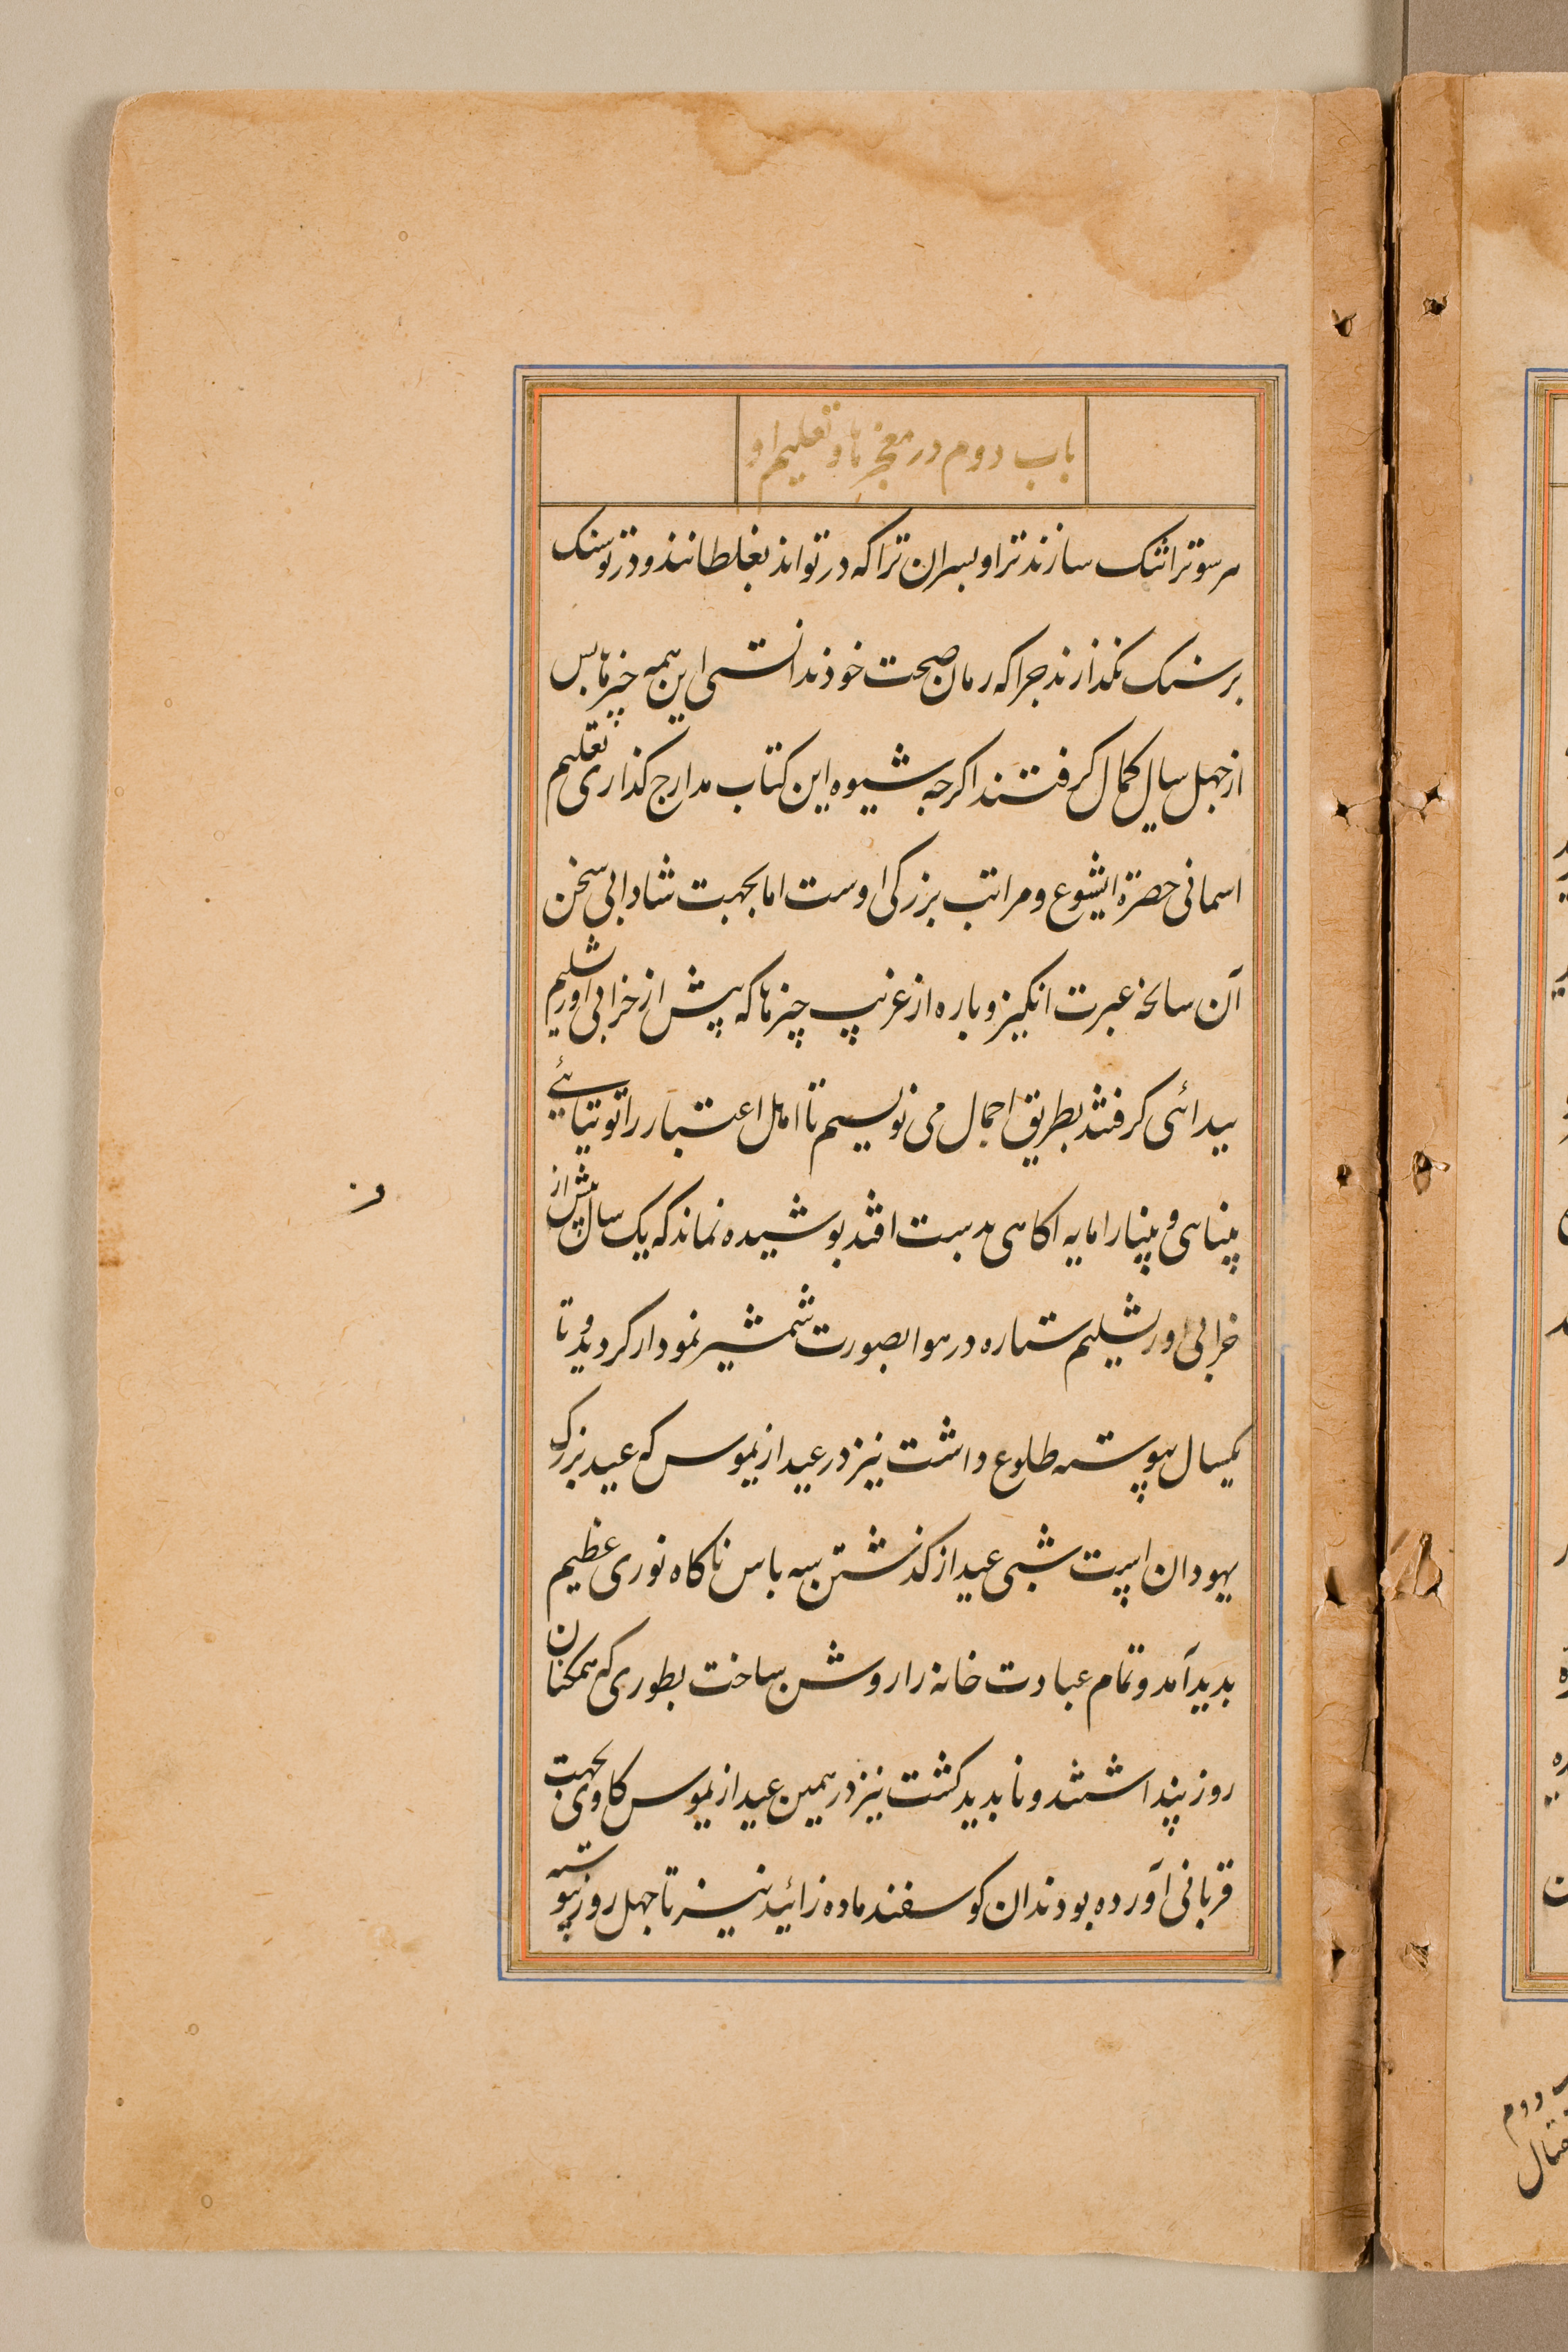 باب دوم در معجزها و تعلیم او
هر سو ترا تنک سازند ترا و بسران ترا که در تو اند بغلطانند و در تو سنک
بر سنک نکذارند جرا که زمان صحت خود ندانستی این همه چیزها بس
از جهل سال کمال کرفتند اکرجه شیوه این کتاب مدارج کذاری تعلیم
اسمانی حضرة ایشوع و مراتب بزرکی اوست اما بجهت شادابی سخن
آن سانحه عبرت انکیز و باره از غریب چیزها که پیش از خرابی اورشلیم
بیدائی کرفتند بطریق اجمال می نویسیم تا اهل اعتبار را توتیائے
بینائی و بینا را مایه اکاهی بدست افتد بوشیده نماند که یک سال پیش از
خرابی اورشلیم ستاره در هوا بصورت شمشیر نمودار کردید و تا
یکسال پیوسته طلوع داشت نیز در عید ازیموس که عید بزرک
یهودان است شبی عید از کذشتن سه باس ناکاه نوری عظیم
بدید آمد و تمام عبادت خانه را روشن ساخت بطوری که همکنان
روز پنداشتند و نابدید کشت نیز در همین عید ازیموس کاوی بجهت
قربانی آورده بودند ان کوسفند ماده زائید نیز تا جهل روز پیوسته